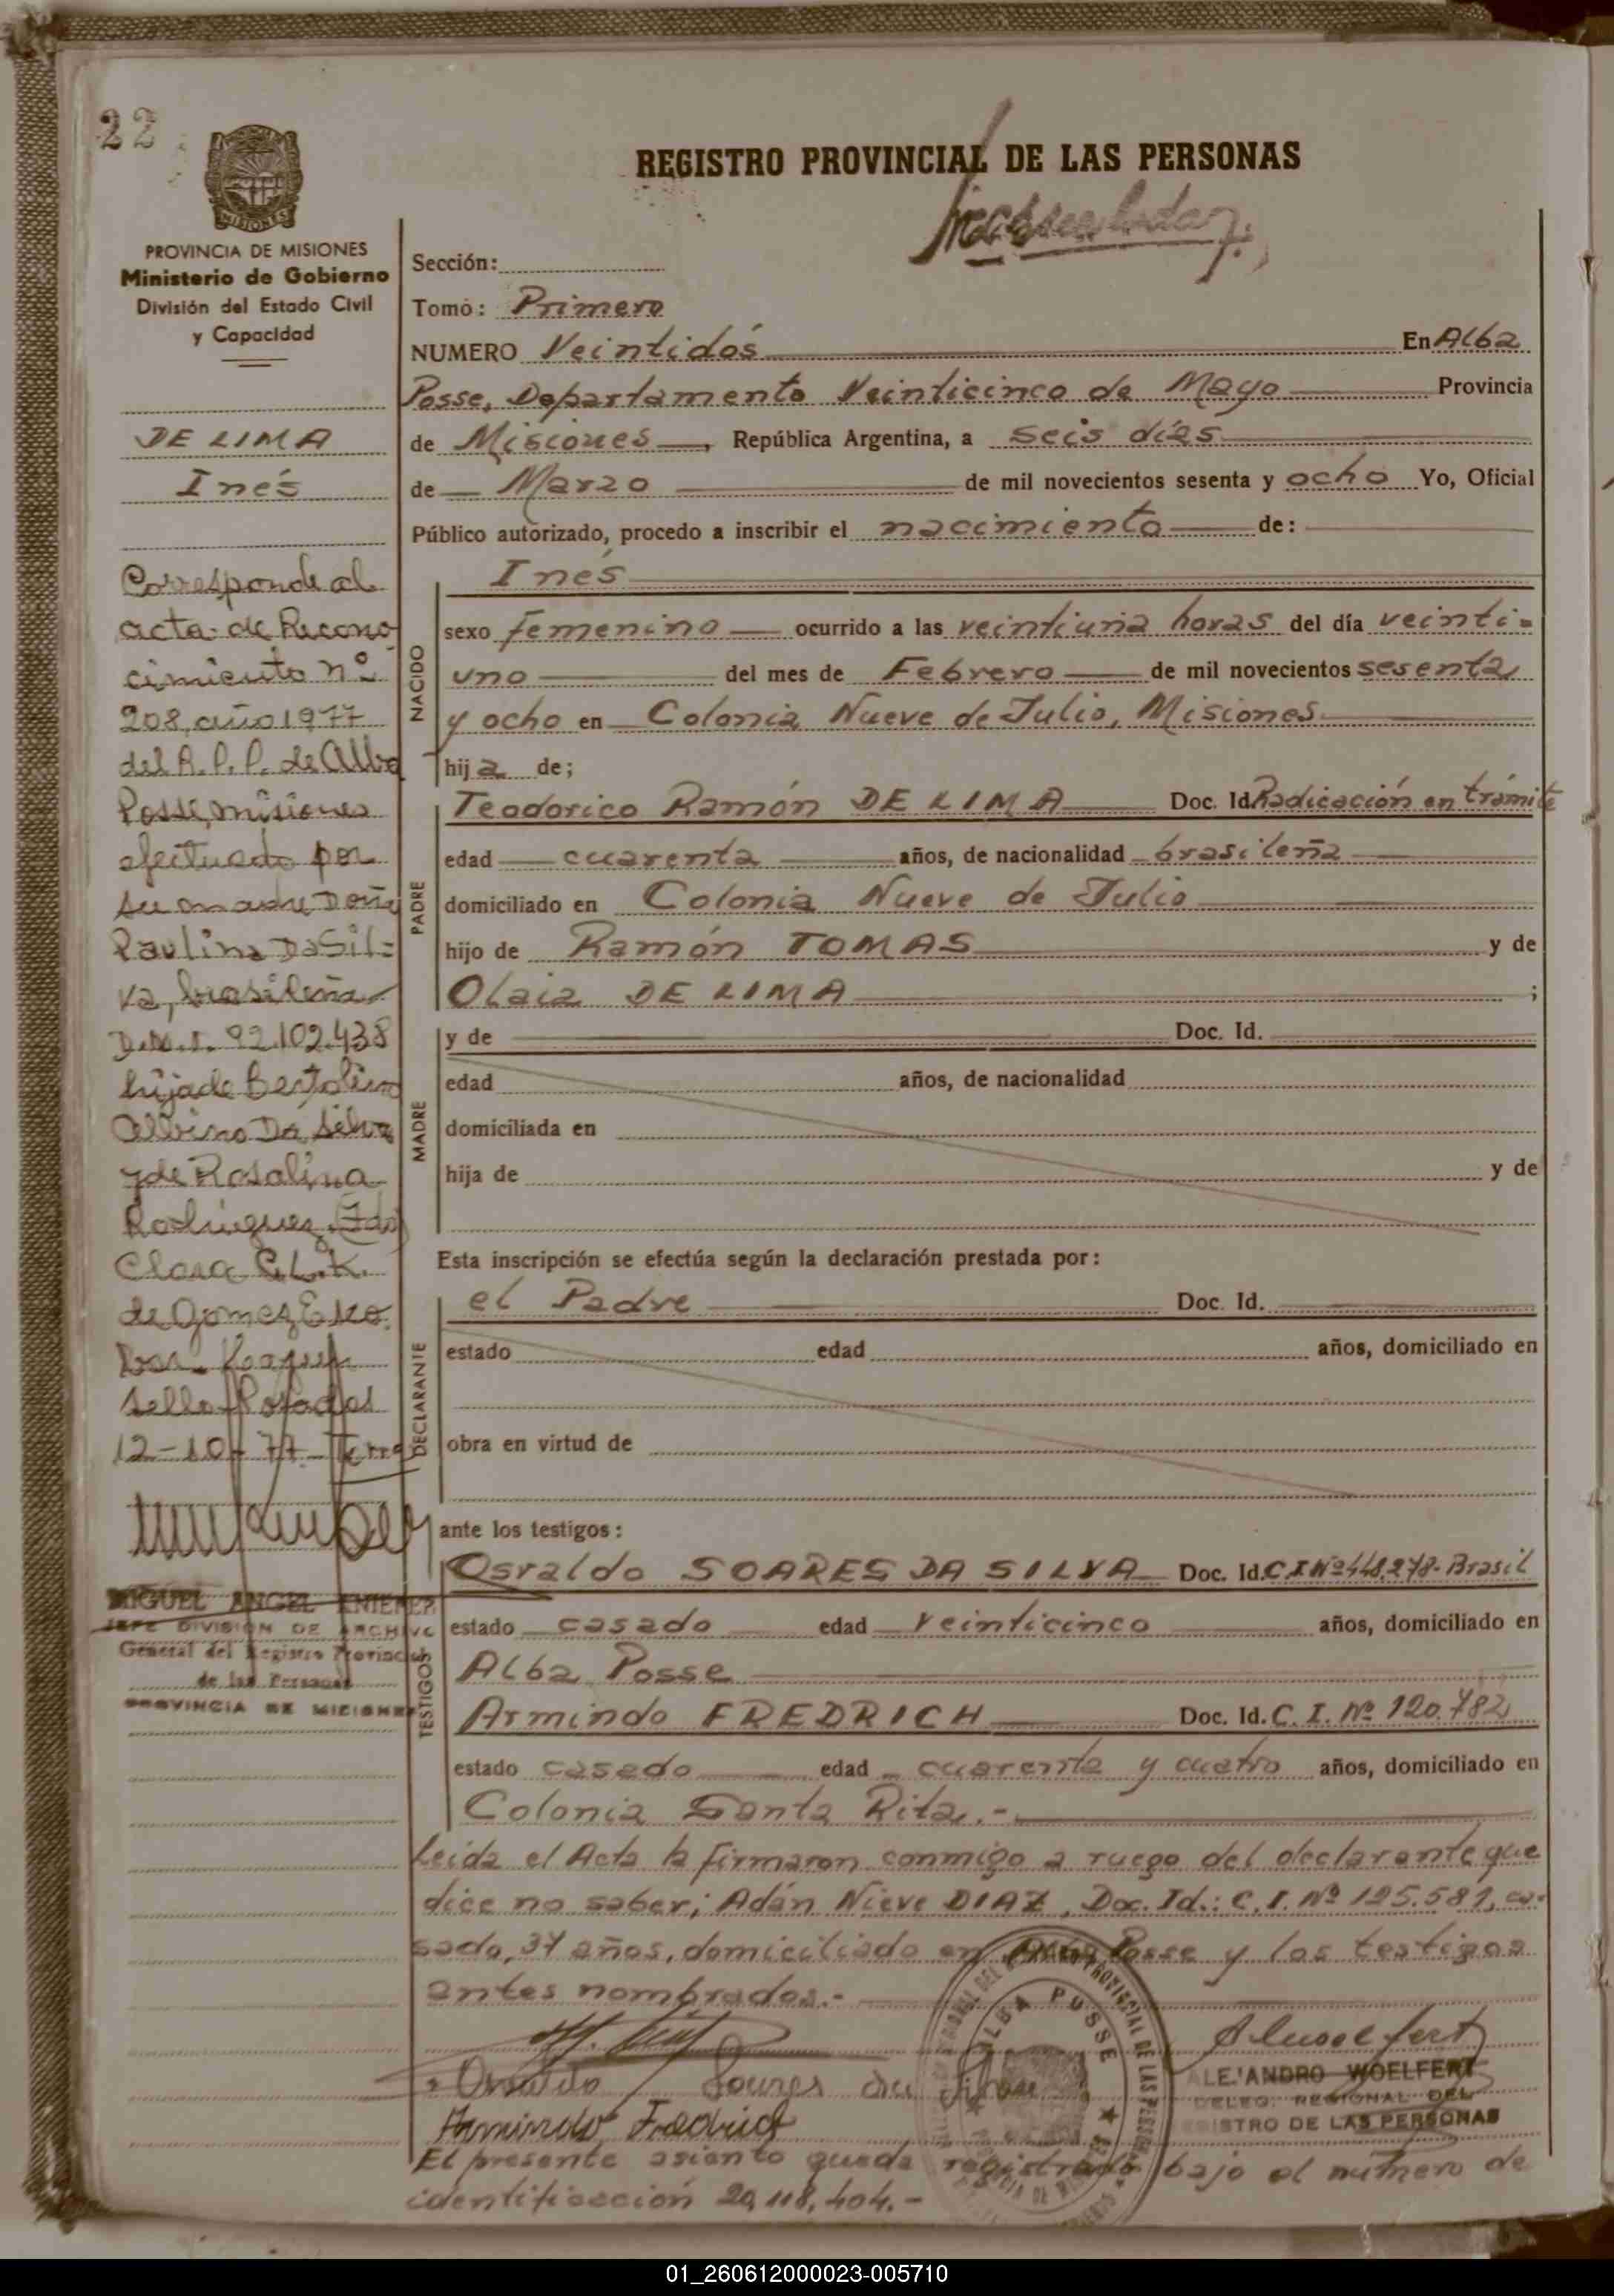 22
MISIONES
PROVINCIA DE MISIONES
Ministerio de Gobierno
División del Estado Civil
y Capacidad
DE LIMA
Inés
Corresponde al
acta de Recono
cimiento nº
208, año 1977
del R.P.P. de Alba
Posse, misiones
efectuado por
su madre Doña
Paulina Da Sil=
va, brasileña
D.N.I. 92.102.438
hija de Bertolino
Albino Da Silva
y de Rosalina
Rodriguez (Fdo)
Clara G.L.K.
de Gomez
sello Posadas
12-10-77
MIGUEL ANGEL
JEFE DIVISION DE ARCHIVO
General del Registro Provincial
de las Personas
PROVINCIA DE MISIONES
REGISTRO PROVINCIAL DE LAS PERSONAS
Sección:
Tomo: Primero
NUMERO Veintidós En Alba
Posse, Departamento Veinticinco de Mayo Provincia
de Misiones, República Argentina, a seis días
de Marzo de mil novecientos sesenta y ocho Yo, Oficial
Público autorizado, procedo a inscribir el nacimiento de:
NACIDO
Inés
sexo femenino ocurrido a las veintiuna horas del día veinti-
uno del mes de Febrero de mil novecientos sesenta
y ocho en Colonia Nueve de Julio, Misiones
hija de;
PADRE
Teodorico Ramón DE LIMA Doc. Id. Radicación en trámite
edad cuarenta años, de nacionalidad brasileña
domiciliado en Colonia Nueve de Julio
hijo de Ramón TOMAS y de
Olaia DE LIMA ;
MADRE
y de Doc. Id.
edad años, de nacionalidad
domiciliada en
hija de y de
Esta inscripción se efectúa según la declaración prestada por:
DECLARANTE
el Padre Doc. Id.
estado edad años, domiciliado en
obra en virtud de
ante los testigos:
TESTIGOS
Osvaldo SOARES DA SILVA Doc. Id. C.I. Nº 448.278-Brasil
estado casado edad veinticinco años, domiciliado en
Alba Posse
Armindo FREDRICH Doc. Id. C. I. Nº 120.782
estado casado edad cuarenta y cuatro años, domiciliado en
Colonia Santa Rita.-
Leida el Acta la firmaron conmigo a ruego del declarante que
dice no saber; Adán Nieve DIAZ, Doc. Id.: C.I. Nº 195.581, ca-
sado, 37 años, domiciliado en Alba Posse y los testigos
antes nombrados.-
Osvaldo Soares da Silva
Armindo Fredrich
ALBA POSSE
ALEJANDRO WOELFERT
DELEG. REGIONAL DEL
REGISTRO DE LAS PERSONAS
El presente asiento queda registrado bajo el número de
identificación 20,118,404.-
01_260612000023-005710